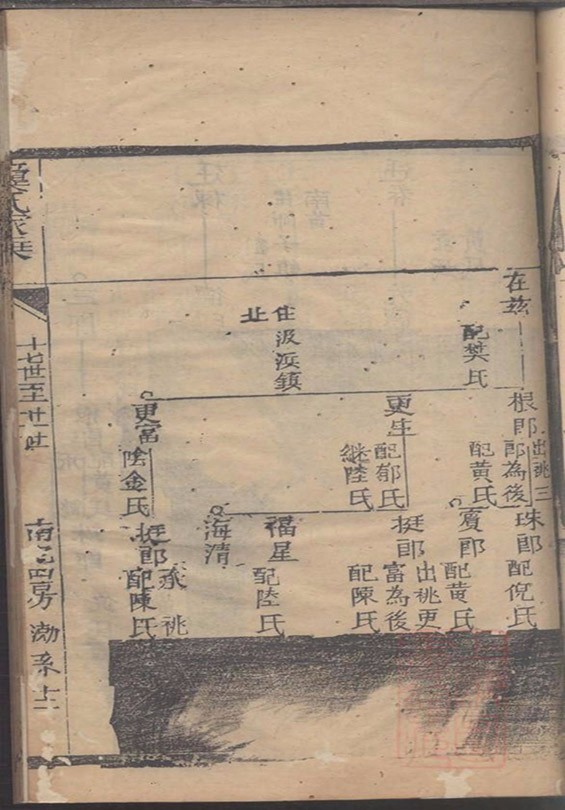 在兹
配樊氏
住汲浜鎮
北
根郎
出祧三
郎為後
配黃氏
更生
配郁氏
継陸氏
更富
陰金氏
珠郎
配倪氏
賓郎
配黃氏
挺郎
出祧更
富為後
配陳氏
福星
配陸氏
海清
挺郎
承祧
配陳氏
氏家乗
十七世至廿一世
南四房